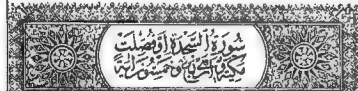 سورة السجدة أو فصلت
مكية وهي ثلاث وخمسون آية